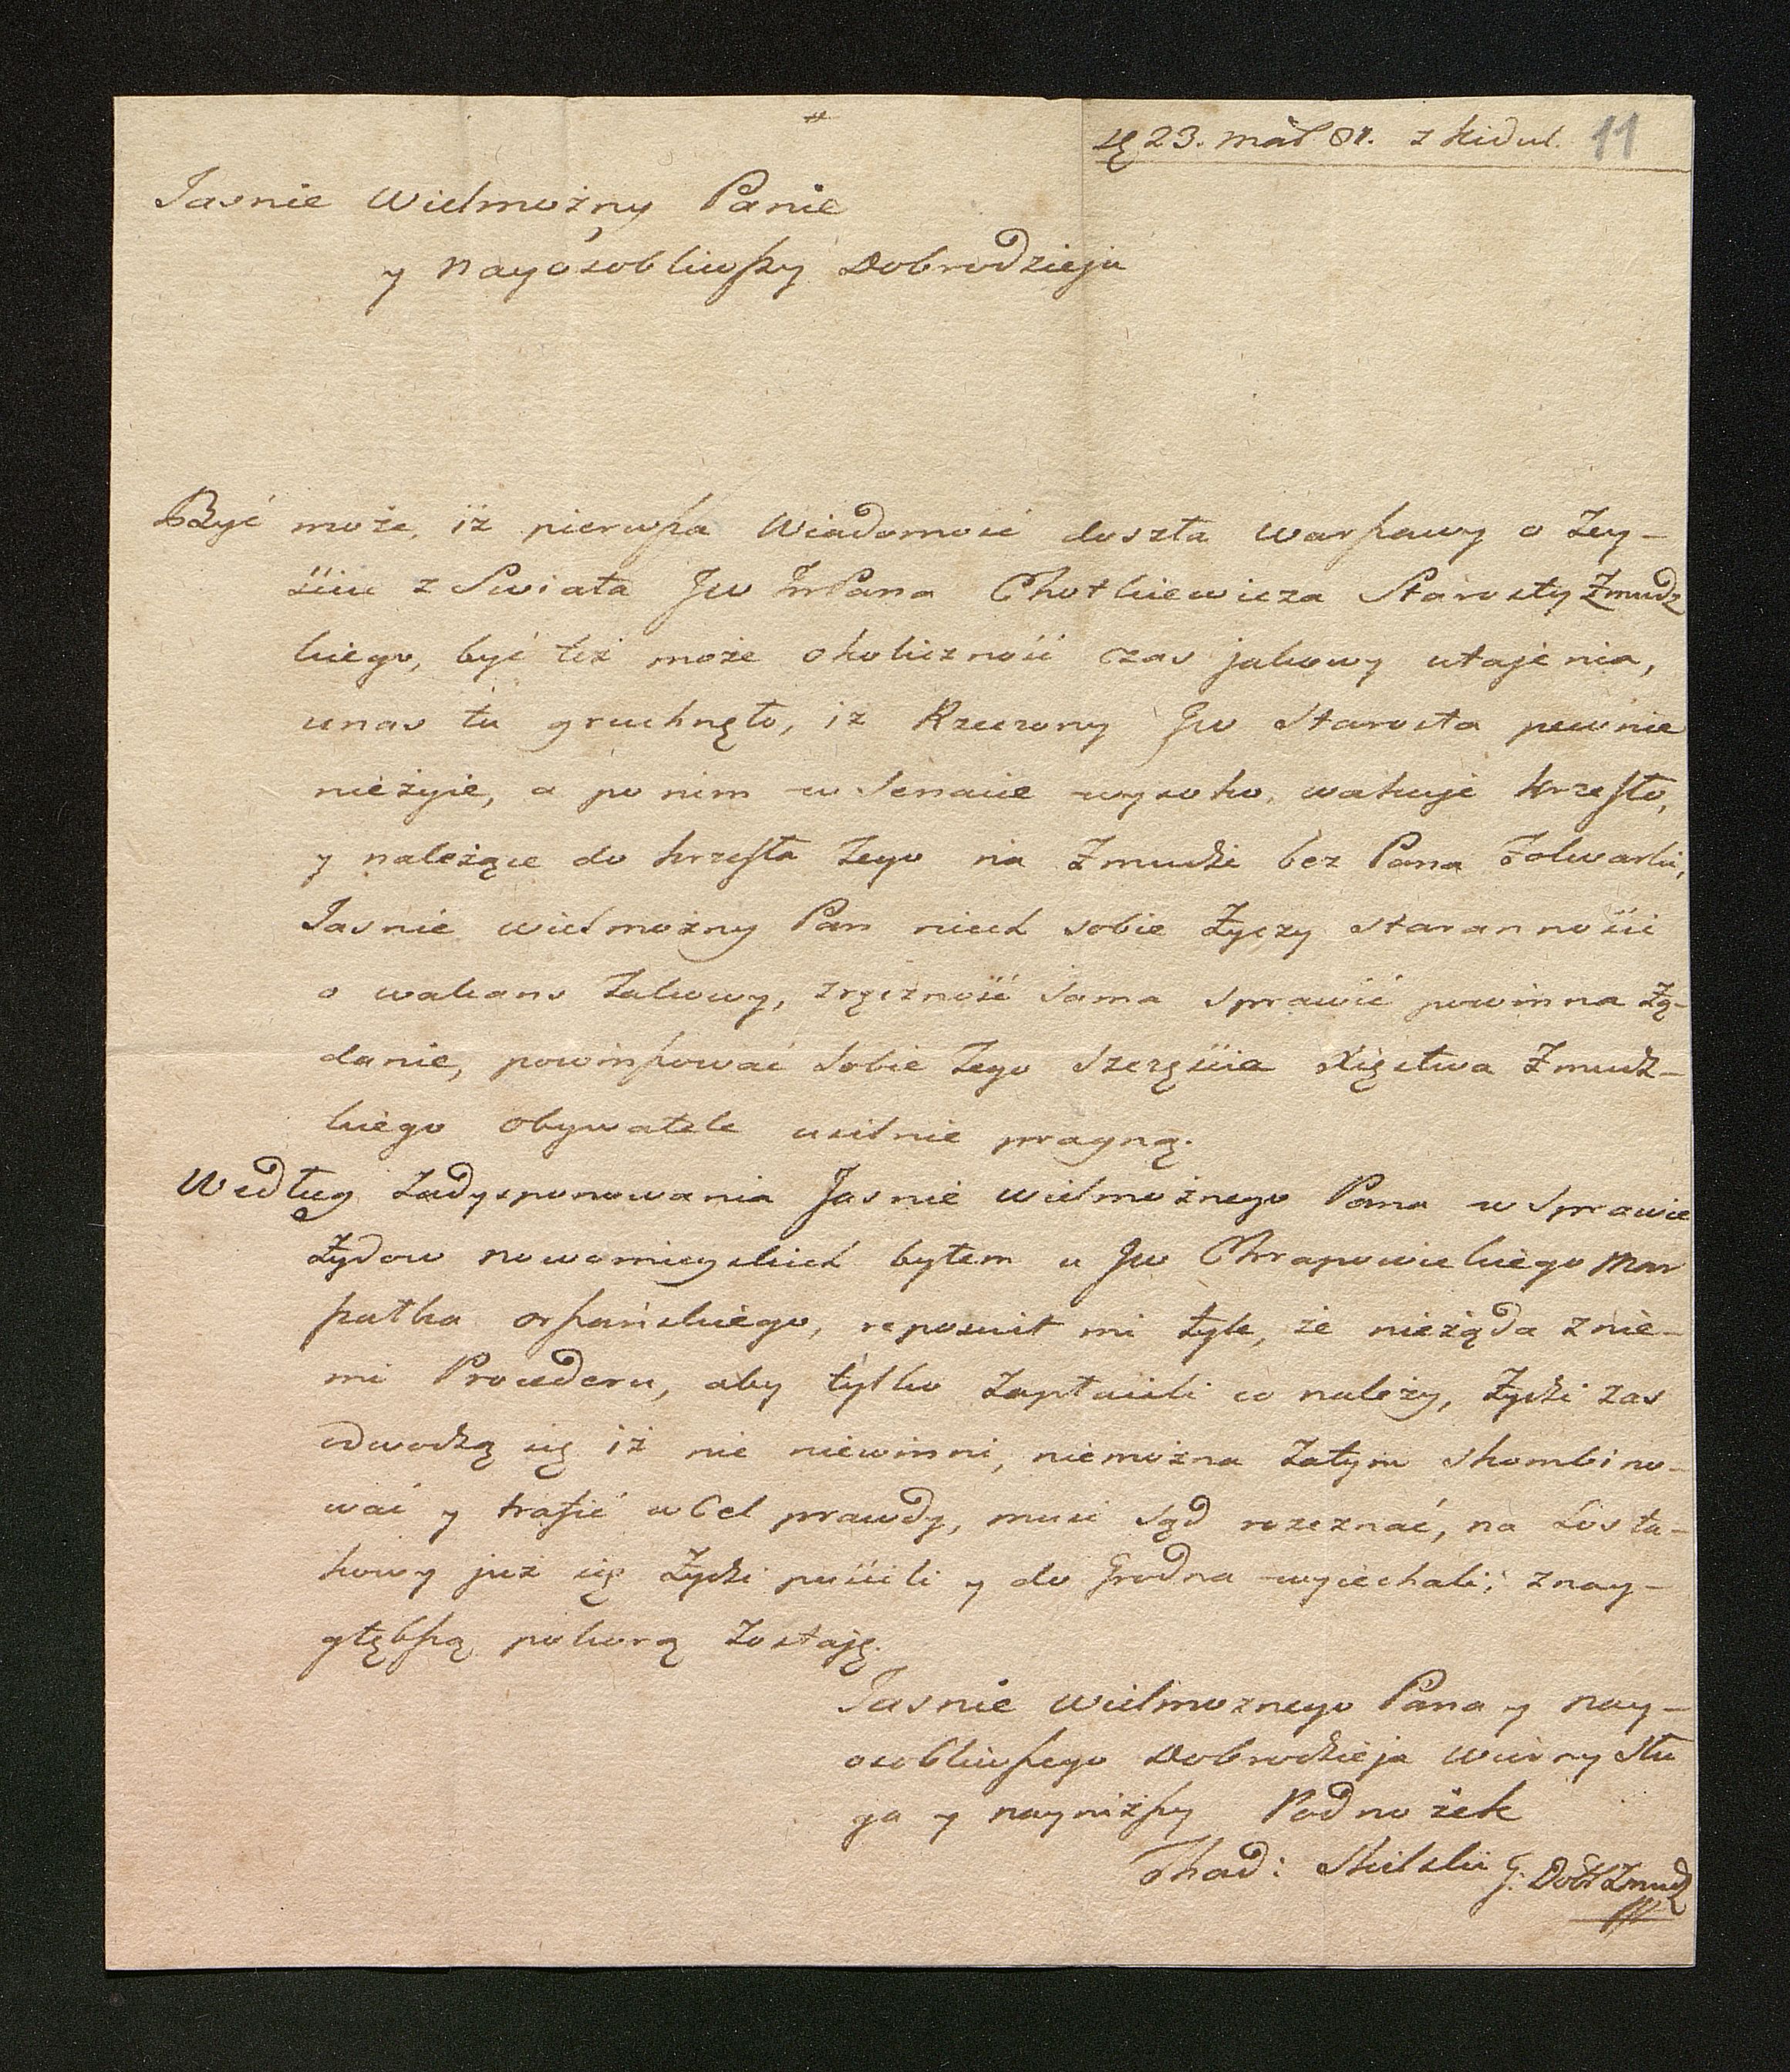 23. mai 81. z Kidul. 11
Jasnie Wielmożny Panie
y Nayosobliwszy Dobrodzieju
Być może, iż pierwsza Wiadomość doszła Warszawy o Zey-
ściu z Swiata Jw JmPana Chotkiewicza Starosty Żmudz
kiego, być też może okoliczność czas jakowy utajenia,
unas tu gruchnęło, iż Rzeczony Jw Starosta pewnie
nieżyie, a po nim w Senacie wysoko wakuje krzesło,
y należące do krzesła tego na Żmudzi bez Pana Folwarki,
Jasnie wielmożny Pan niech sobie życzy staranności
o wakans takowy, zręczność sama sprawić powinna żą-
danie, powinszować sobie tego szczęścia Xięstwa Żmudz-
kiego obywatele usilnie pragną.
Według zadysponowania Jasnie wielmożnego Pana w Sprawie
Żydow nowomieyskich byłem u Jw Chrapowickiego Mar
szałka orszańskiego, reposuit mi tyle, że nieżąda z nie-
mi Procederu, aby tylko zapłacili co należy, Żydzi zas
odwodzą się iż nic niewinni, niemożna zatym skombino-
wać y trafić w Cel prawdy, musi sąd rozeznać, na Los ta-
kowy już się Żydzi puścili y do Grodna wyiechali; z nay-
głębszą pokorą zostaję.
Jasnie wielmoznego Pana y nay-
osobliwszego Dobrodzieja Wierny Słu
ga y nayniższy Podnożek
Thad: Skilski